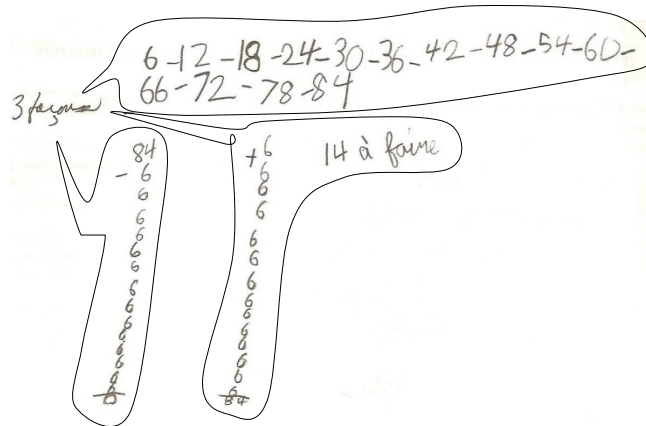 6-12-18-24-30-36-42-48-54-60-
66-72-78-84
3 façons
84
- 6
6
6
6
6
6
6
6
6
6
6
6
6
6
0
+6
6
6
6
6
6
6
6
6
6
6
6
6
6
84
14 à faire